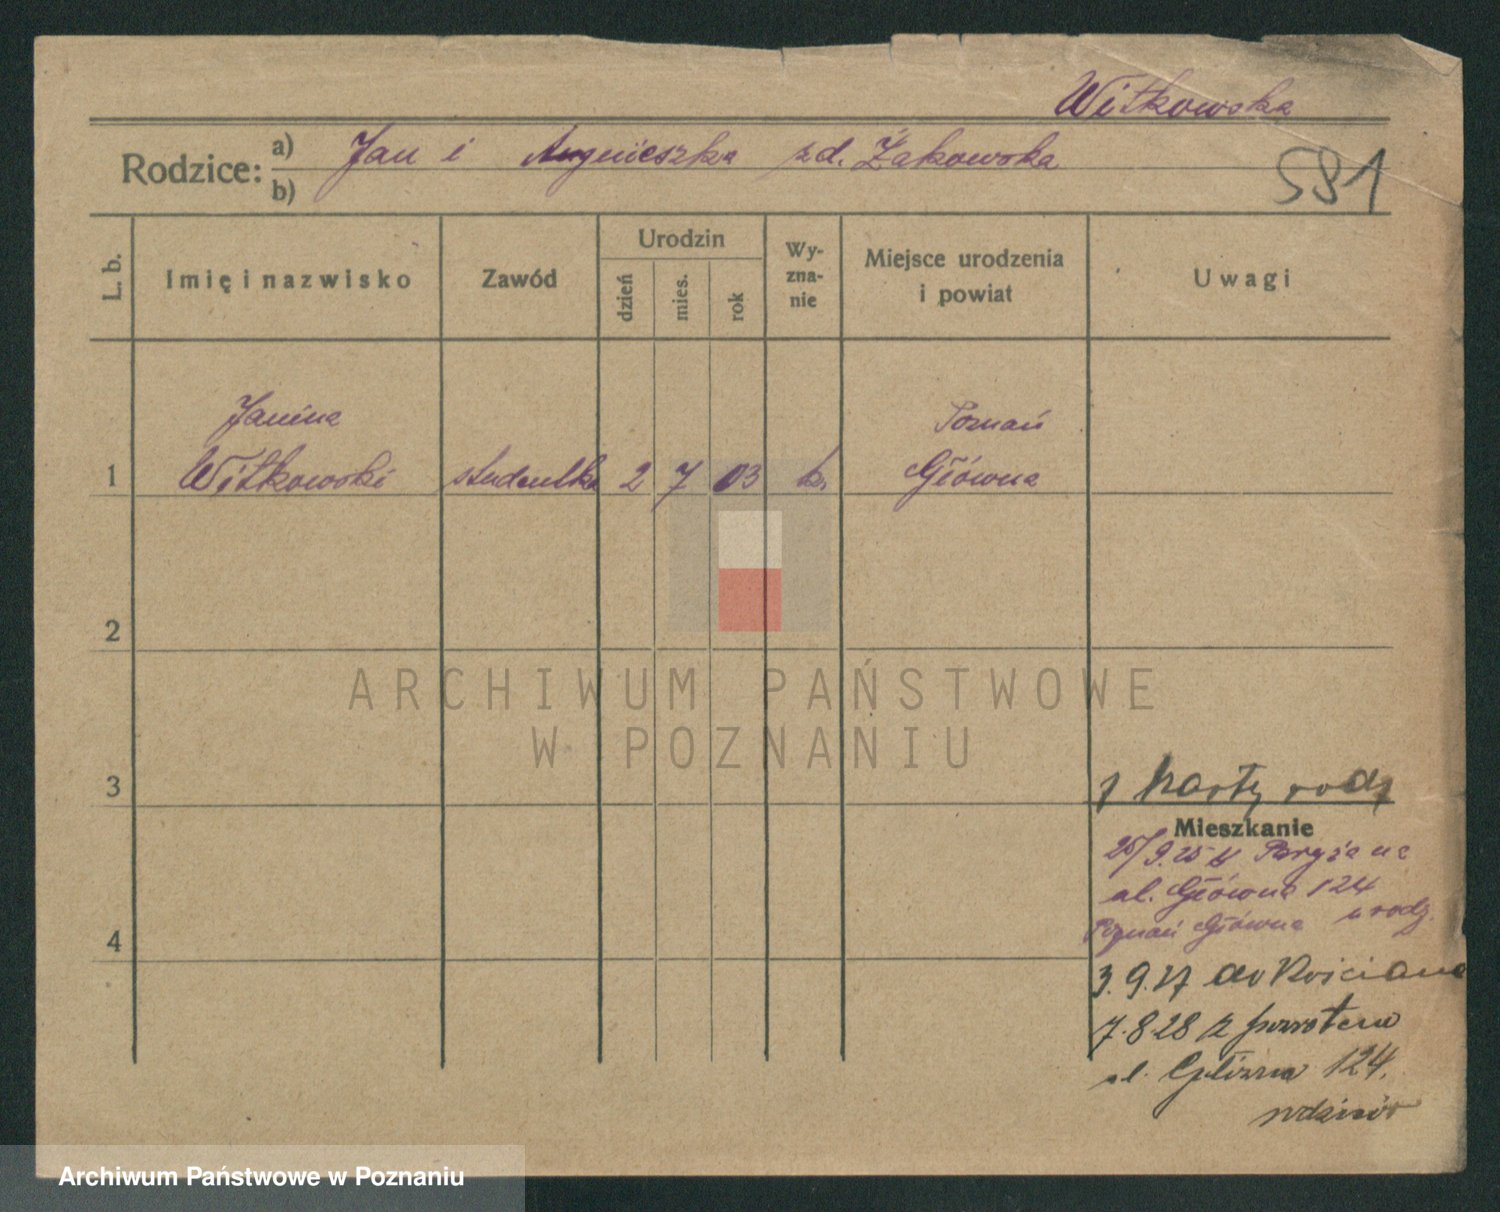 Witkowska
Rodzice: a) Jan i Agnieszka zd. Żakowska
b)
591
L. b. Imię i nazwisko Zawód Urodzin dzień mies. rok Wy-zna-nie Miejsce urodzenia i powiat Uwagi
Janina Poznań
1 Witkowski studentka 2 7 03 k. Główna
2
ARCHIWUM PAŃSTWOWE
W POZNANIU
3 z karty rodz
Mieszkanie
25/9.25 z Paryża na
ul. Główna 124
4 Poznań Główna u rodz.
3.9.27 do Kościana
7.8.28 z powrotem
ul. Główna 124.
Archiwum Państwowe w Poznaniu